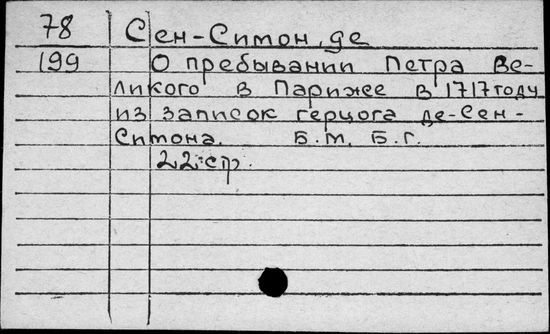 78 Сен-Симон, де
199 О пребывании Петра Ве-
ликого в Париже в 1717 году
из записок герцога де-Сен-
Симона. Б.м. Б.г.
22 стр.